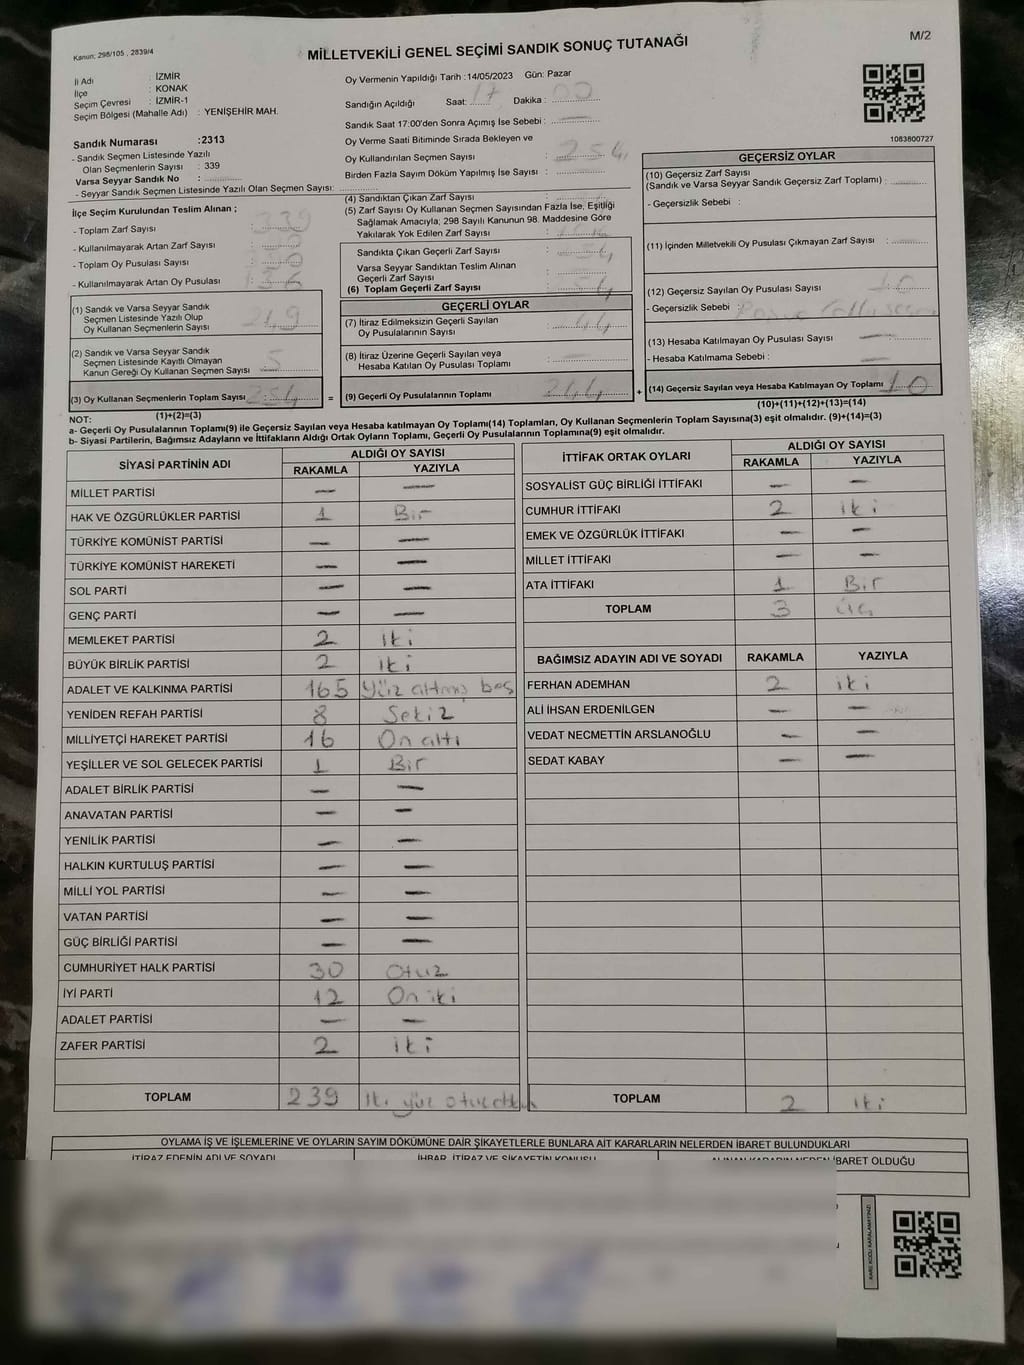 Kanun: 298/105 , 2839/4
MİLLETVEKİLİ GENEL SEÇİMİ SANDIK SONUÇ TUTANAĞI
M/2
İl Adı : İZMİR
İlçe : KONAK
Seçim Çevresi : İZMİR-1
Seçim Bölgesi (Mahalle Adı) : YENİŞEHİR MAH.
Sandık Numarası :2313
- Sandık Seçmen Listesinde Yazılı
Olan Seçmenlerin Sayısı : 339
Varsa Seyyar Sandık No :
- Seyyar Sandık Seçmen Listesinde Yazılı Olan Seçmen Sayısı:
Oy Vermenin Yapıldığı Tarih :14/05/2023 Gün: Pazar
Sandığın Açıldığı Saat: 17 Dakika : 00
Sandık Saat 17:00'den Sonra Açımış İse Sebebi :
Oy Verme Saati Bitiminde Sırada Bekleyen ve
Oy Kullandırılan Seçmen Sayısı : 254
Birden Fazla Sayım Döküm Yapılmış İse Sayısı :
1083800727
İlçe Seçim Kurulundan Teslim Alınan ;
- Toplam Zarf Sayısı : 339
- Kullanılmayarak Artan Zarf Sayısı :
- Toplam Oy Pusulası Sayısı :
- Kullanılmayarak Artan Oy Pusulası : 136
(1) Sandık ve Varsa Seyyar Sandık
Seçmen Listesinde Yazılı Olup
Oy Kullanan Seçmenlerin Sayısı : 249
(2) Sandık ve Varsa Seyyar Sandık
Seçmen Listesinde Kayıtlı Olmayan
Kanun Gereği Oy Kullanan Seçmen Sayısı : 5
(3) Oy Kullanan Seçmenlerin Toplam Sayısı : 254
(1)+(2)=(3)
(4) Sandıktan Çıkan Zarf Sayısı :
(5) Zarf Sayısı Oy Kullanan Seçmen Sayısından Fazla İse, Eşitliği
Sağlamak Amacıyla; 298 Sayılı Kanunun 98. Maddesine Göre
Yakılarak Yok Edilen Zarf Sayısı :
Sandıkta Çıkan Geçerli Zarf Sayısı :
Varsa Seyyar Sandıktan Teslim Alınan
Geçerli Zarf Sayısı :
(6) Toplam Geçerli Zarf Sayısı :
=
GEÇERLİ OYLAR
(7) İtiraz Edilmeksizin Geçerli Sayılan
Oy Pusulalarının Sayısı :
(8) İtiraz Üzerine Geçerli Sayılan veya
Hesaba Katılan Oy Pusulası Toplamı :
(9) Geçerli Oy Pusulalarının Toplamı 244
+
GEÇERSİZ OYLAR
(10) Geçersiz Zarf Sayısı
(Sandık ve Varsa Seyyar Sandık Geçersiz Zarf Toplamı) :
- Geçersizlik Sebebi :
(11) İçinden Milletvekili Oy Pusulası Çıkmayan Zarf Sayısı :
(12) Geçersiz Sayılan Oy Pusulası Sayısı : 10
- Geçersizlik Sebebi :
(13) Hesaba Katılmayan Oy Pusulası Sayısı : —
- Hesaba Katılmama Sebebi : —
(14) Geçersiz Sayılan veya Hesaba Katılmayan Oy Toplamı : 10
(10)+(11)+(12)+(13)=(14)
NOT:
a- Geçerli Oy Pusulalarının Toplamı(9) ile Geçersiz Sayılan veya Hesaba katılmayan Oy Toplamı(14) Toplamları, Oy Kullanan Seçmenlerin Toplam Sayısına(3) eşit olmalıdır. (9)+(14)=(3)
b- Siyasi Partilerin, Bağımsız Adayların ve İttifakların Aldığı Ortak Oyların Toplamı, Geçerli Oy Pusulalarının Toplamına(9) eşit olmalıdır.
SİYASİ PARTİNİN ADI ALDIĞI OY SAYISI
RAKAMLA YAZIYLA
MİLLET PARTİSİ — —
HAK VE ÖZGÜRLÜKLER PARTİSİ 1 Bir
TÜRKİYE KOMÜNİST PARTİSİ — —
TÜRKİYE KOMÜNİST HAREKETİ — —
SOL PARTİ — —
GENÇ PARTİ — —
MEMLEKET PARTİSİ 2 iki
BÜYÜK BİRLİK PARTİSİ 2 iki
ADALET VE KALKINMA PARTİSİ 165 Yüz altmış beş
YENİDEN REFAH PARTİSİ 8 Sekiz
MİLLİYETÇİ HAREKET PARTİSİ 16 On altı
YEŞİLLER VE SOL GELECEK PARTİSİ 1 Bir
ADALET BİRLİK PARTİSİ — —
ANAVATAN PARTİSİ — —
YENİLİK PARTİSİ — —
HALKIN KURTULUŞ PARTİSİ — —
MİLLİ YOL PARTİSİ — —
VATAN PARTİSİ — —
GÜÇ BİRLİĞİ PARTİSİ — —
CUMHURİYET HALK PARTİSİ 30 Otuz
İYİ PARTİ 12 On iki
ADALET PARTİSİ — —
ZAFER PARTİSİ 2 iki
TOPLAM 239 İki yüz otuz dokuz
İTTİFAK ORTAK OYLARI ALDIĞI OY SAYISI
RAKAMLA YAZIYLA
SOSYALİST GÜÇ BİRLİĞİ İTTİFAKI — —
CUMHUR İTTİFAKI 2 iki
EMEK VE ÖZGÜRLÜK İTTİFAKI — —
MİLLET İTTİFAKI — —
ATA İTTİFAKI 1 Bir
TOPLAM 3 üç
BAĞIMSIZ ADAYIN ADI VE SOYADI RAKAMLA YAZIYLA
FERHAN ADEMHAN 2 iki
ALİ İHSAN ERDENİLGEN — —
VEDAT NECMETTİN ARSLANOĞLU — —
SEDAT KABAY — —
TOPLAM 2 iki
OYLAMA İŞ VE İŞLEMLERİNE VE OYLARIN SAYIM DÖKÜMÜNE DAİR ŞİKAYETLERLE BUNLARA AİT KARARLARIN NELERDEN İBARET BULUNDUKLARI
İTİRAZ EDENİN ADI VE SOYADI İHBAR, İTİRAZ VE ŞİKAYETİN KONUSU ALINAN KARARIN NEDEN İBARET OLDUĞU